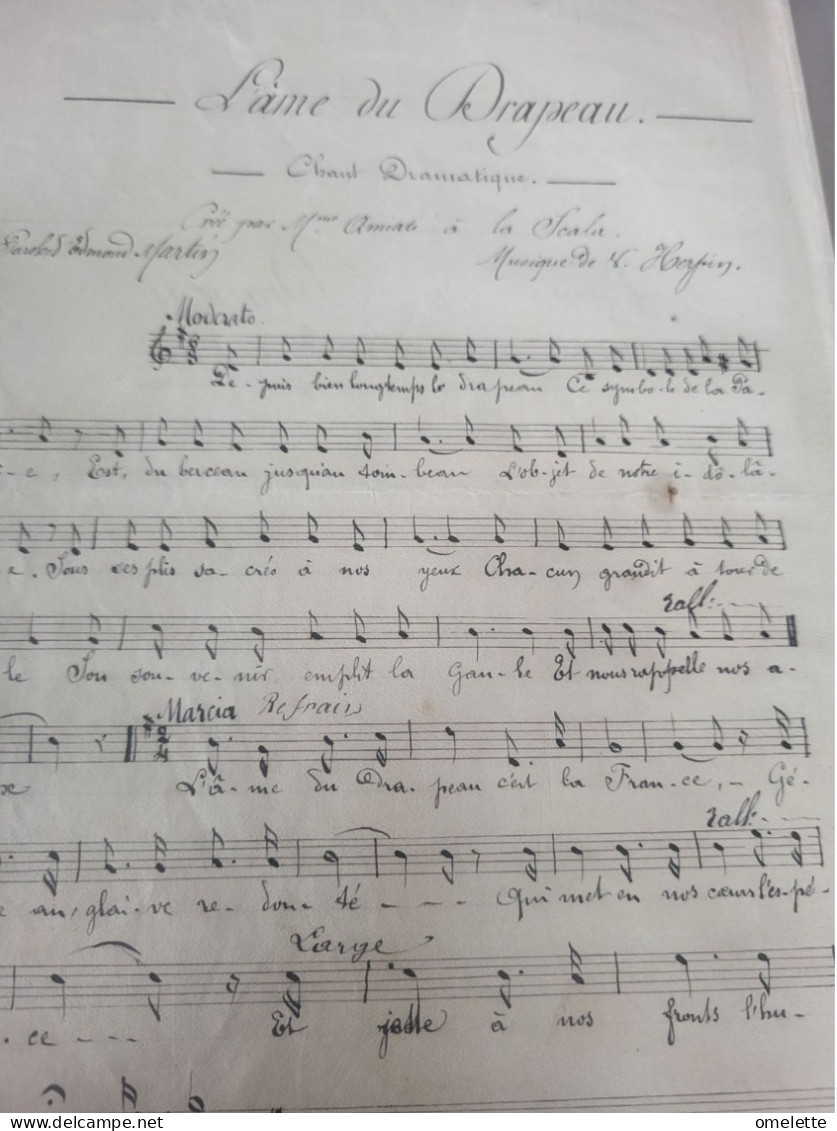 L'âme du Drapeau.
Chant Dramatique.
Créé par Mme Amiati à la Scala.
Paroles Edmond Martin
Musique de V. Herpin.
Moderato.
De-puis bien longtemps le drapeau Ce symbo-le de la Pa-
-i-e, Est, du berceau jusqu'au tom-beau L'ob-jet de notre i-dô-lâ-
e. Tous ses plis sa-crés à nos yeux Cha-cun grandit à tour de
rall:
le Son sou-ve-nir emplit la Gau-le Et nous rappelle nos a-
Marcia Refrain
L'â-me du Dra-peau c'est la Fran-ce, - Gé-
rall:
e au glai-ve re-dou-té - - - Qui met en nos cœurs l'es-pé-
Large
ce - - - Et jette à nos fronts l'hu-
omelette